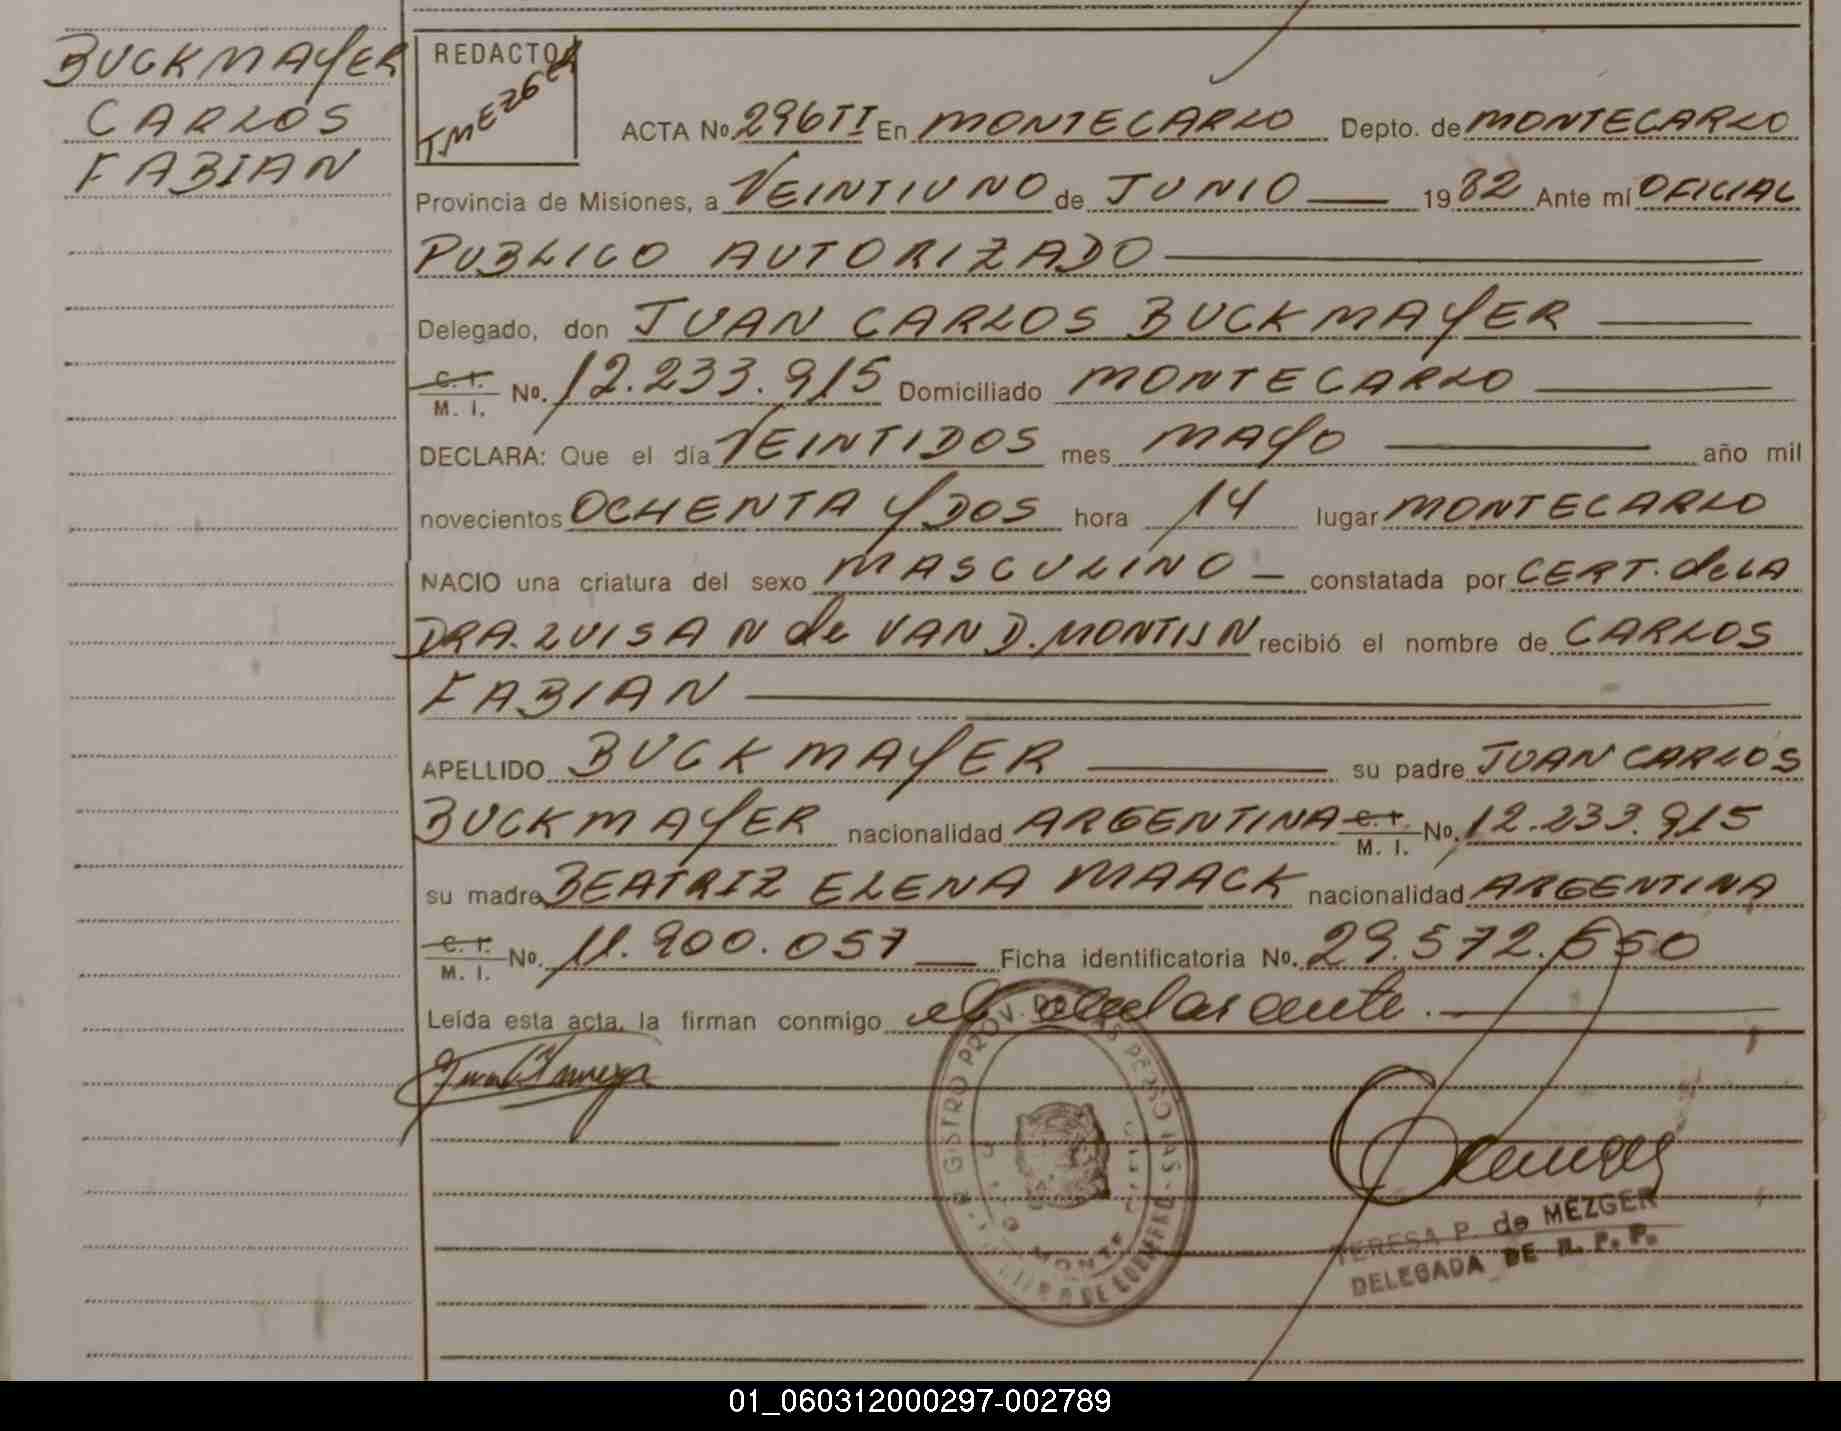 BUCKMAYER
CARLOS
FABIAN
REDACTOR
TMEZGER
ACTA No. 296 TI En MONTECARLO Depto. de MONTECARLO
Provincia de Misiones, a VEINTIUNO de JUNIO 1982 Ante mí OFICIAL
PUBLICO AUTORIZADO
Delegado, don JUAN CARLOS BUCKMAYER
C. I. M. I. No. 12.233.915 Domiciliado MONTECARLO
DECLARA: Que el día VEINTIDOS mes MAYO año mil
novecientos OCHENTA Y DOS hora 14 lugar MONTECARLO
NACIO una criatura del sexo MASCULINO constatada por CERT. de LA
DRA. LUISA N de VAN D. MONTIJN recibió el nombre de CARLOS
FABIAN
APELLIDO BUCKMAYER su padre JUAN CARLOS
BUCKMAYER nacionalidad ARGENTINA C. I. M. I. No. 12.233.915
su madre BEATRIZ ELENA MAACK nacionalidad ARGENTINA
C. I. M. I. No. 11.900.057 Ficha identificatoria No. 29.572.550
Leída esta acta, la firman conmigo el declarante.
TERESA P. de MEZGER
DELEGADA DE R. P. P.
01_060312000297-002789